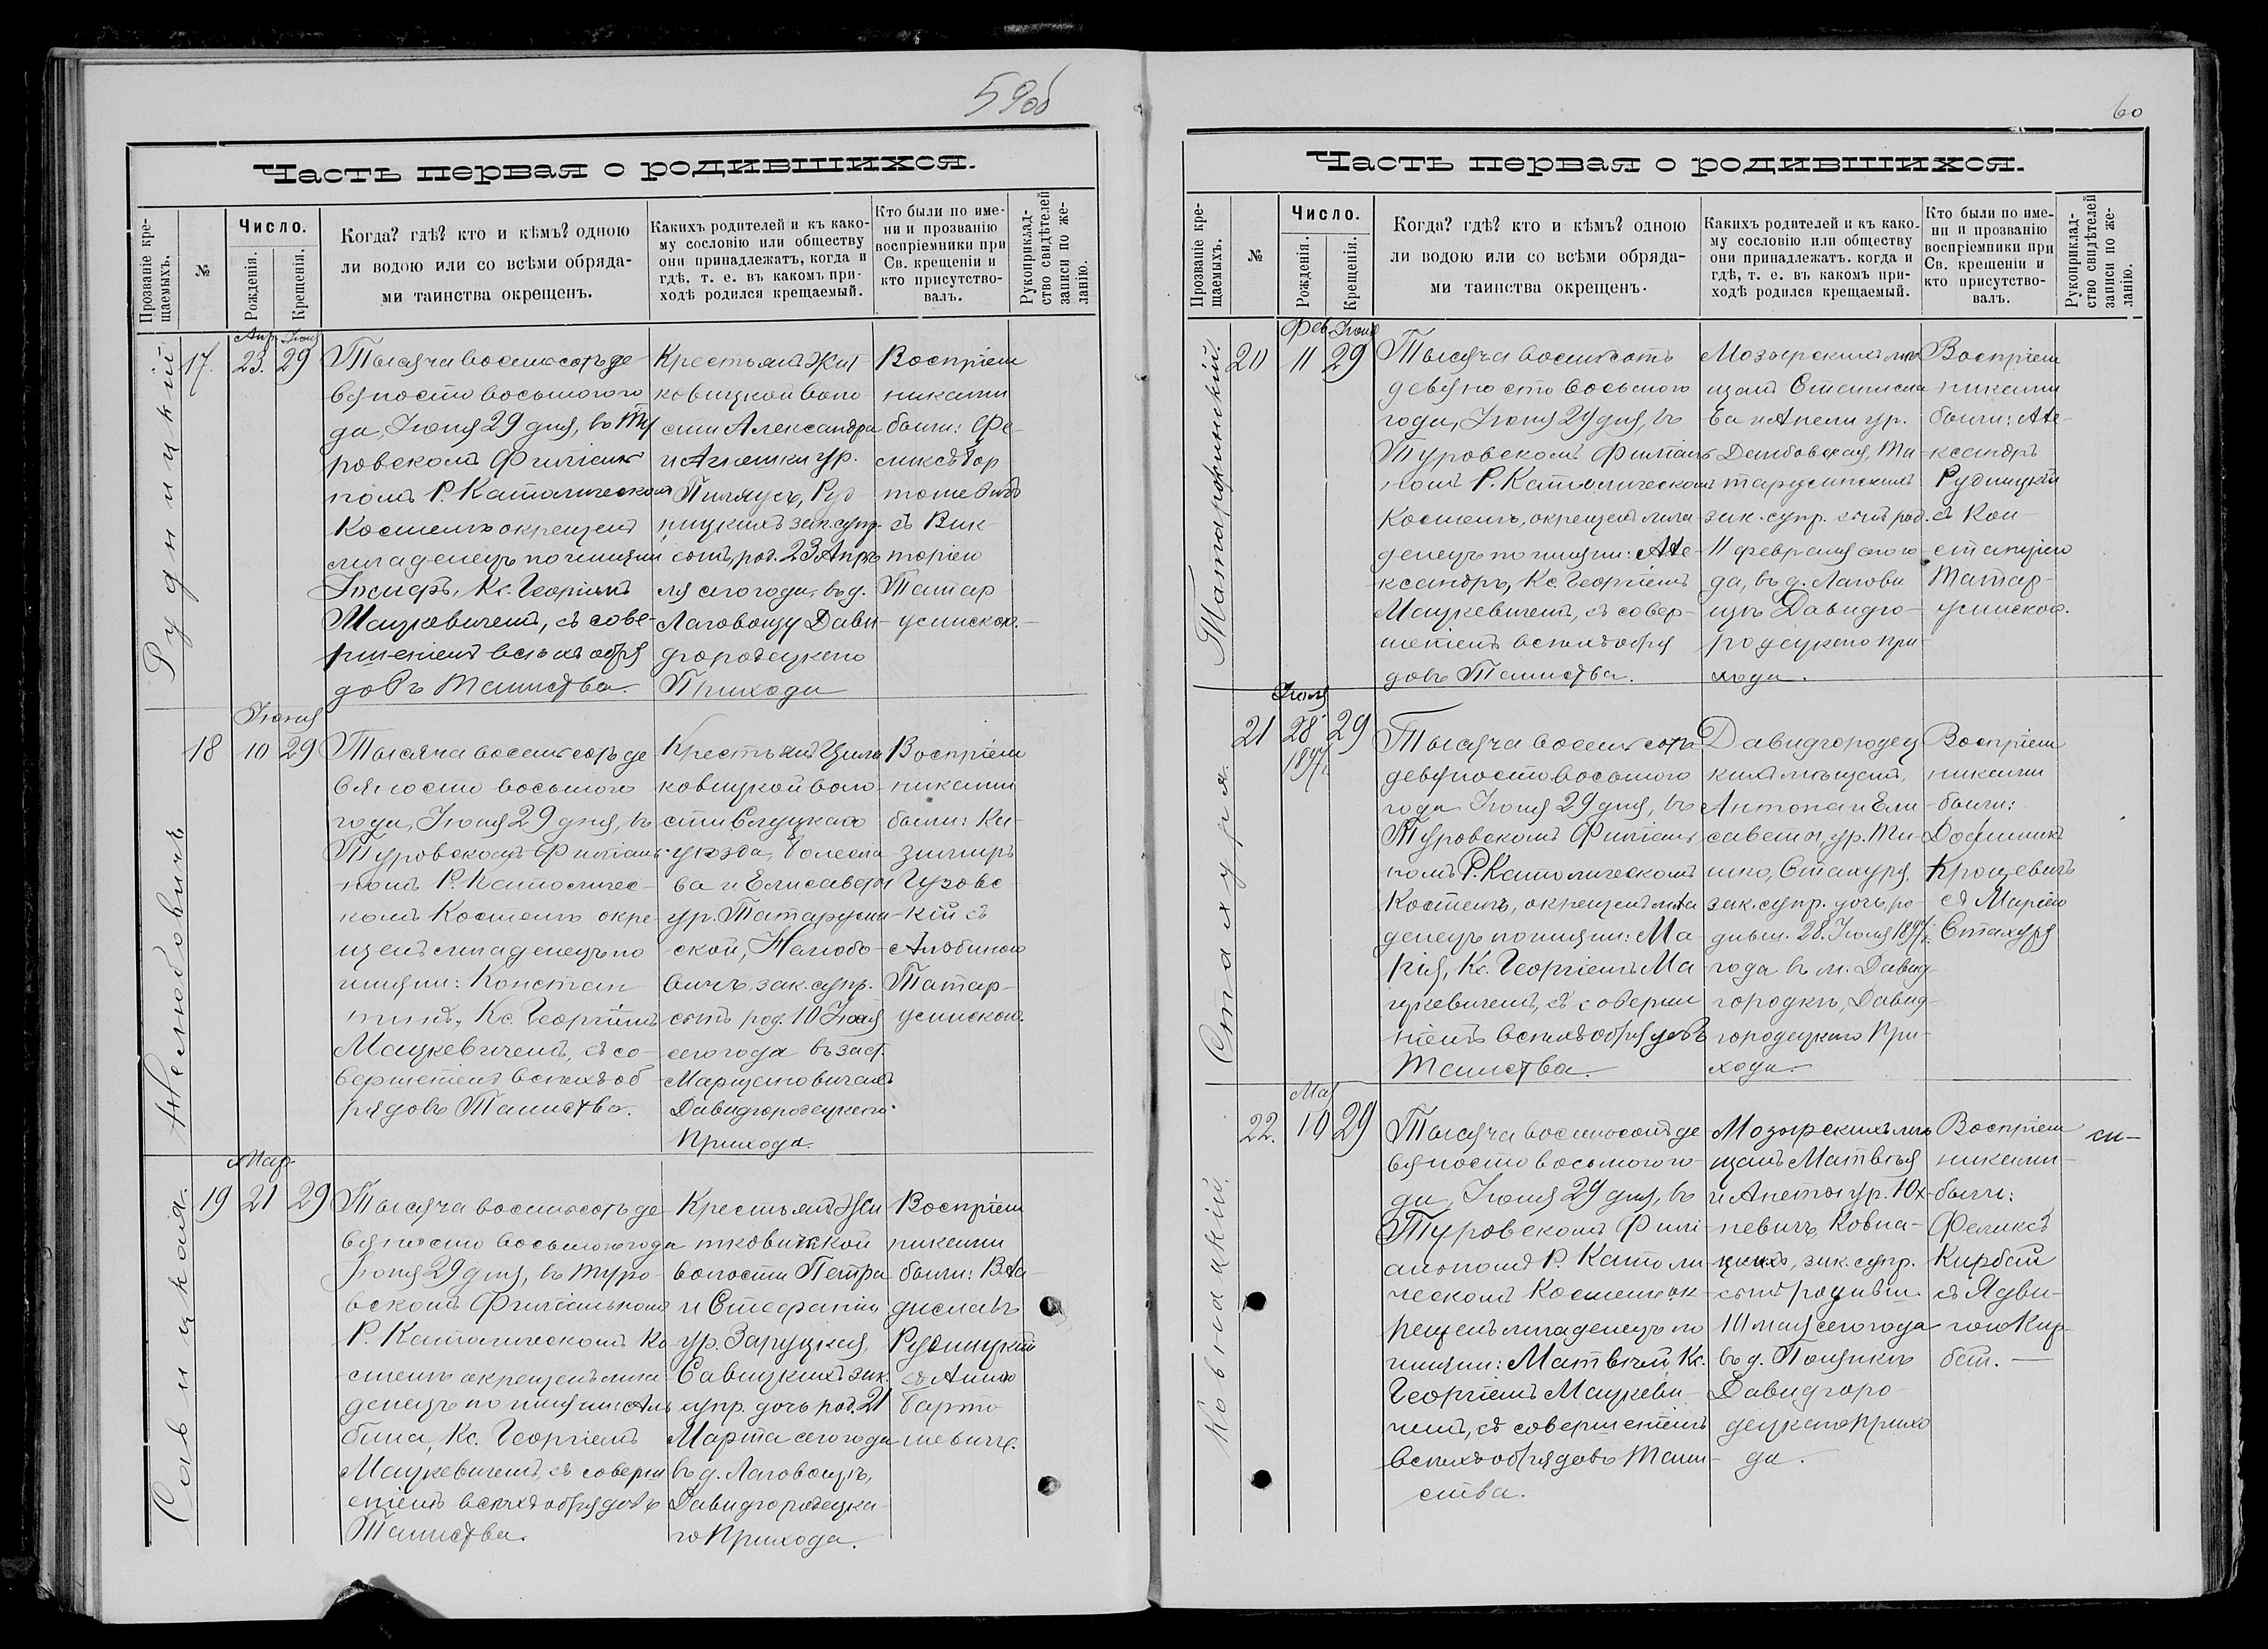 59об
Часть первая о родившихся.
Прозваніе кре-
щаемыхъ.
№
Число.
Рожденія.
Крещенія.
Когда? гдѣ? кто и кѣмъ? одною
ли водою или со всѣми обряда-
ми таинства окрещенъ.
Какихъ родителей и къ како-
му сословію или обществу
они принадлежатъ, когда и
гдѣ, т. е. въ какомъ при-
ходѣ родился крещаемый.
Кто были по име-
ни и прозванію
воспріемники при
Св. крещеніи и
кто присутство-
валъ.
Рукоприклад-
ство свидѣтелей
записи по же-
ланію.
Рудницкій
17.
Апр.
23.
Іюня
29
Тысяча восемьсотъ де
вяносто восьмого го
да, Іюня 29 дня, въ Ту
ровскомъ Филіаль
номъ Р. Католическомъ
Костелѣ окрещенъ
младенецъ по имени
Іосифъ, Кс. Георгіемъ
Мацкевичемъ, съ сове-
ршеніемъ всѣхъ обря
довъ Таинства.
Крестьянъ Жит
ковицкой воло
сти Александра
и Агнешки ур.
Пиляусъ, Руд
ницкихъ зак. супр.
сынъ, род. 23 Апрѣ
ля сего года, въ д.
Лаговощу Дави
дгородецкаго
Прихода
Воспріем
никами
были: Фе-
ликсъ Бар
тошевичъ
съ Вик-
торіею
Татар
усинскою.
18
Іюня
10 29
Тысяча восемьсотъ де
вяносто восьмого
года, Іюня 29 дня, въ
Туровскомъ Филіаль
номъ Р. Католичес-
комъ Костелѣ окре-
щенъ младенецъ по
имени: Констан
тинъ, Кс. Георгіемъ
Мацкевичемъ, съ со-
вершеніемъ всѣхъ об
рядовъ Таинства.
Крестьянъ
ковицкой воло-
сти Слуцкаго
уѣзда, Болесла
ва и Елисаветы
ур. Татаруси
ской,
вичъ, зак. супр.
сынъ род. 10 Іюня
сего года въ заст.
Марцановичахъ
Давидгородецкаго
Прихода.
Воспріем
никами
были: Ка-
зиміръ
Гузовс
кій съ
Альбиною
Татар-
усинскою.
Савицкая.
19
Мар.
21 29
Тысяча восемьсотъ де
вяносто восьмого года
Іюня 29 дня, въ Туро-
вскомъ Филіальномъ
Р. Католическомъ Ко
стелѣ окрещенъ мла
денецъ по имени: Аль
бина, Кс. Георгіемъ
Мацкевичемъ, съ соверш
еніемъ всѣхъ обрядовъ
Таинства.
Крестьянъ Жи
тковицкой
волости Петра
и Стефаніи
ур. Заруцкая,
Савицкихъ зак.
супр. дочь род. 21
Марта сего года
въ д. Лаговощѣ,
Давидгородецка-
го Прихода.
Воспріем
никами
были: Вла-
диславъ
Рудницкій
съ Анною
Барто
шевичъ.
60
Часть первая о родившихся.
Прозваніе кре-
щаемыхъ.
№
Число.
Рожденія.
Крещенія.
Когда? гдѣ? кто и кѣмъ? одною
ли водою или со всѣми обряда-
ми таинства окрещенъ.
Какихъ родителей и къ како-
му сословію или обществу
они принадлежатъ. когда и
гдѣ, т. е. въ какомъ при-
ходѣ родился крещаемый.
Кто были по име-
ни и прозванію
воспріемники при
Св. крещеніи и
кто присутство-
валъ.
Рукоприклад-
ство свидѣтелей
записи по же-
ланію.
20
Фев.
11
Іюня
29
Тысяча восемьсотъ
девяносто восьмого
года, Іюня 29 дня, въ
Туровскомъ Филіаль
номъ Р. Католическомъ
Костелѣ, окрещенъ мла
денецъ по имени: Але-
ксандръ, Кс. Георгіемъ
Мацкевичемъ, съ совер-
шеніемъ всѣхъ обря
довъ Таинства.
Мозырскихъ мѣ
щанъ Станисла
ва и Анели ур.
Дембовская, Та-
тарусинскихъ
зак. супр. сынъ род.
11 февраля сего го
да, въ д. Лагови
щѣ Давидго-
родецкаго При-
хода.
Воспріем
никами
были: Але-
ксандръ
Рудницкій
съ Кон-
станціею
Татар-
усинскою.
Стахуря.
21
Іюня
28
1897г.
29
Тысяча восемьсотъ
девяносто восьмого
года Іюня 29 дня, въ
Туровскомъ Филіаль
номъ Р. Католическомъ
Костелѣ, окрещенъ мла
денецъ по имени: Ма-
рія, Кс. Георгіемъ Ма
цкевичемъ, съ соверше
ніемъ всѣхъ обрядовъ
Таинства.
Давидгородец
кихъ мѣщанъ,
Антона и Ели
саветы, ур.
Стахуря,
зак. супр. дочь, ро-
дивш. 28. Іюня 1897г.
года въ м. Давид-
городкѣ, Давид-
городецкаго При-
хода.
Воспріем
никами
были:
Доминикъ
Крошевичъ
съ Маріею
Стахуря
22.
Мая
10 29
Тысяча восемьсотъ де
вяносто восьмого го-
да, Іюня 29 дня, въ
Туровскомъ Филі-
альномъ Р. Католи
ческомъ Костелѣ ок-
рещенъ младенецъ по
имени: Матвѣй, Кс.
Георгіемъ Мацкеви-
чемъ, съ совершеніемъ
всѣхъ обрядовъ Таин-
ства.
Мозырскихъ мѣ
щанъ Матвѣя
и Анеты ур. Юх-
невичъ,
зак. супр.
сынъ родивш.
10 мая сего года
въ д.
Давидгоро-
децкаго Прихо
да.
Воспріем
никами
были:
Феликсъ
съ Ядви-
гою